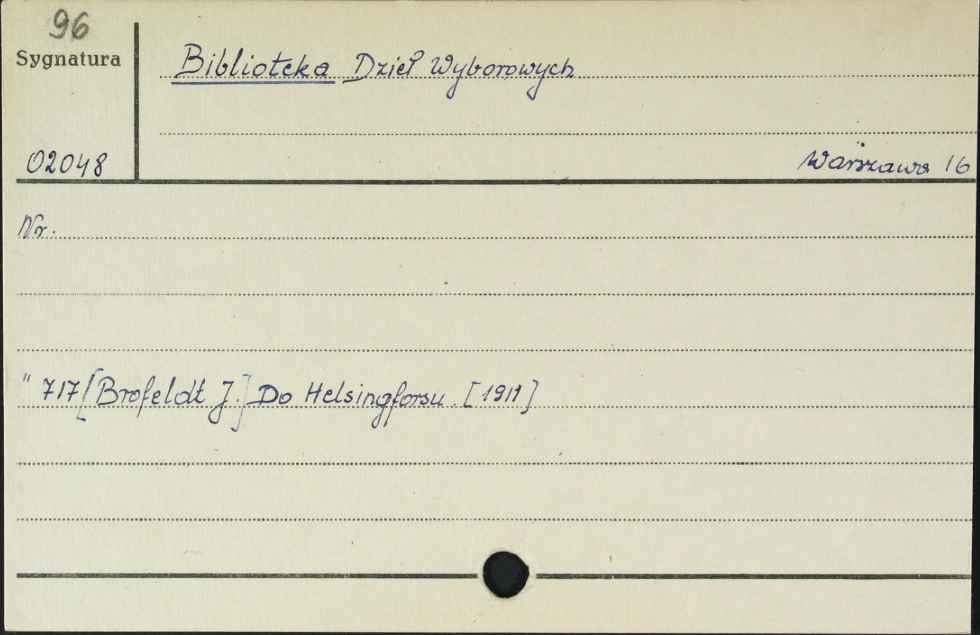 96
Sygnatura
Biblioteka Dzieł Wyborowych
02048
Warszawa 16
Nr.
" 717 [Brofeldt J.] Do Helsingforsu. [1911]